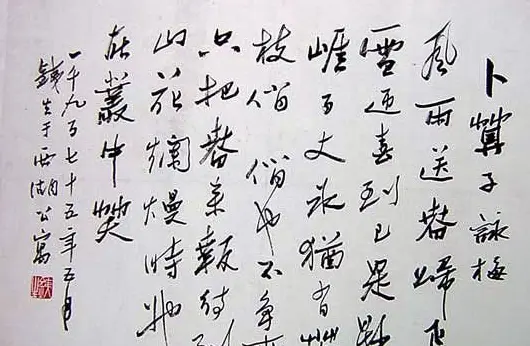 卜算子 詠梅
風雨送春歸
雪迎春到已是
崖百丈冰猶有
枝俏 俏也不爭
只把春來報待到
山花爛熳時她
在叢中笑
一千九百七十五年五月
錢 于西湖公寓